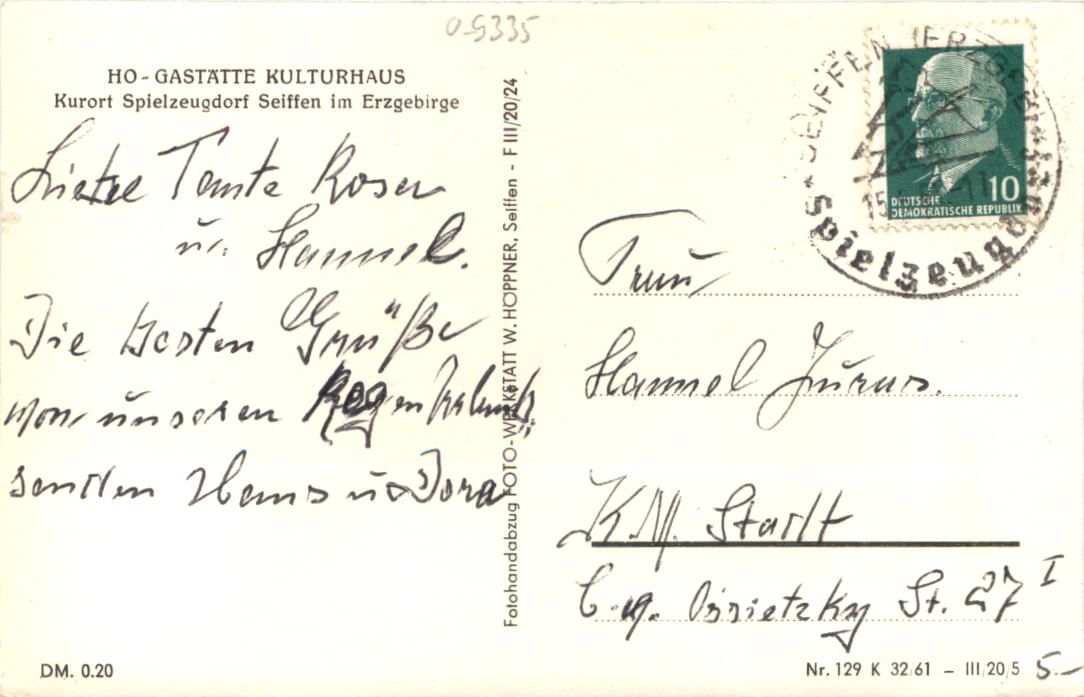 0-5335
HO-GASTÄTTE KULTURHAUS
Kurort Spielzeugdorf Seiffen im Erzgebirge
Liebe Tante Rosen
u. Hannel.
Die besten Grüße
von unseren Regen
senden Hans u Dora
Fotohandabzug FOTO-WERKSTATT W. HÖPPNER, Seiffen - F III/20/24
SEIFFEN (ERZGEB)
Spielzeugdorf
10
DEUTSCHE
DEMOKRATISCHE REPUBLIK
Hannel
K.M. Stadt
C. v. Ossietzky St. 27 I
DM. 0.20
Nr. 129 K 32/61 - III/20/5
5.-